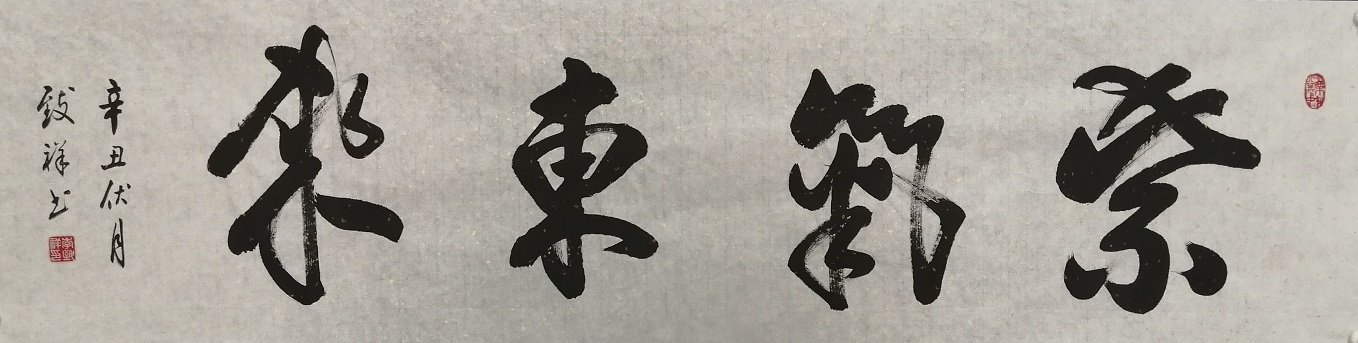 紫氣東來
辛丑伏月
致祥书